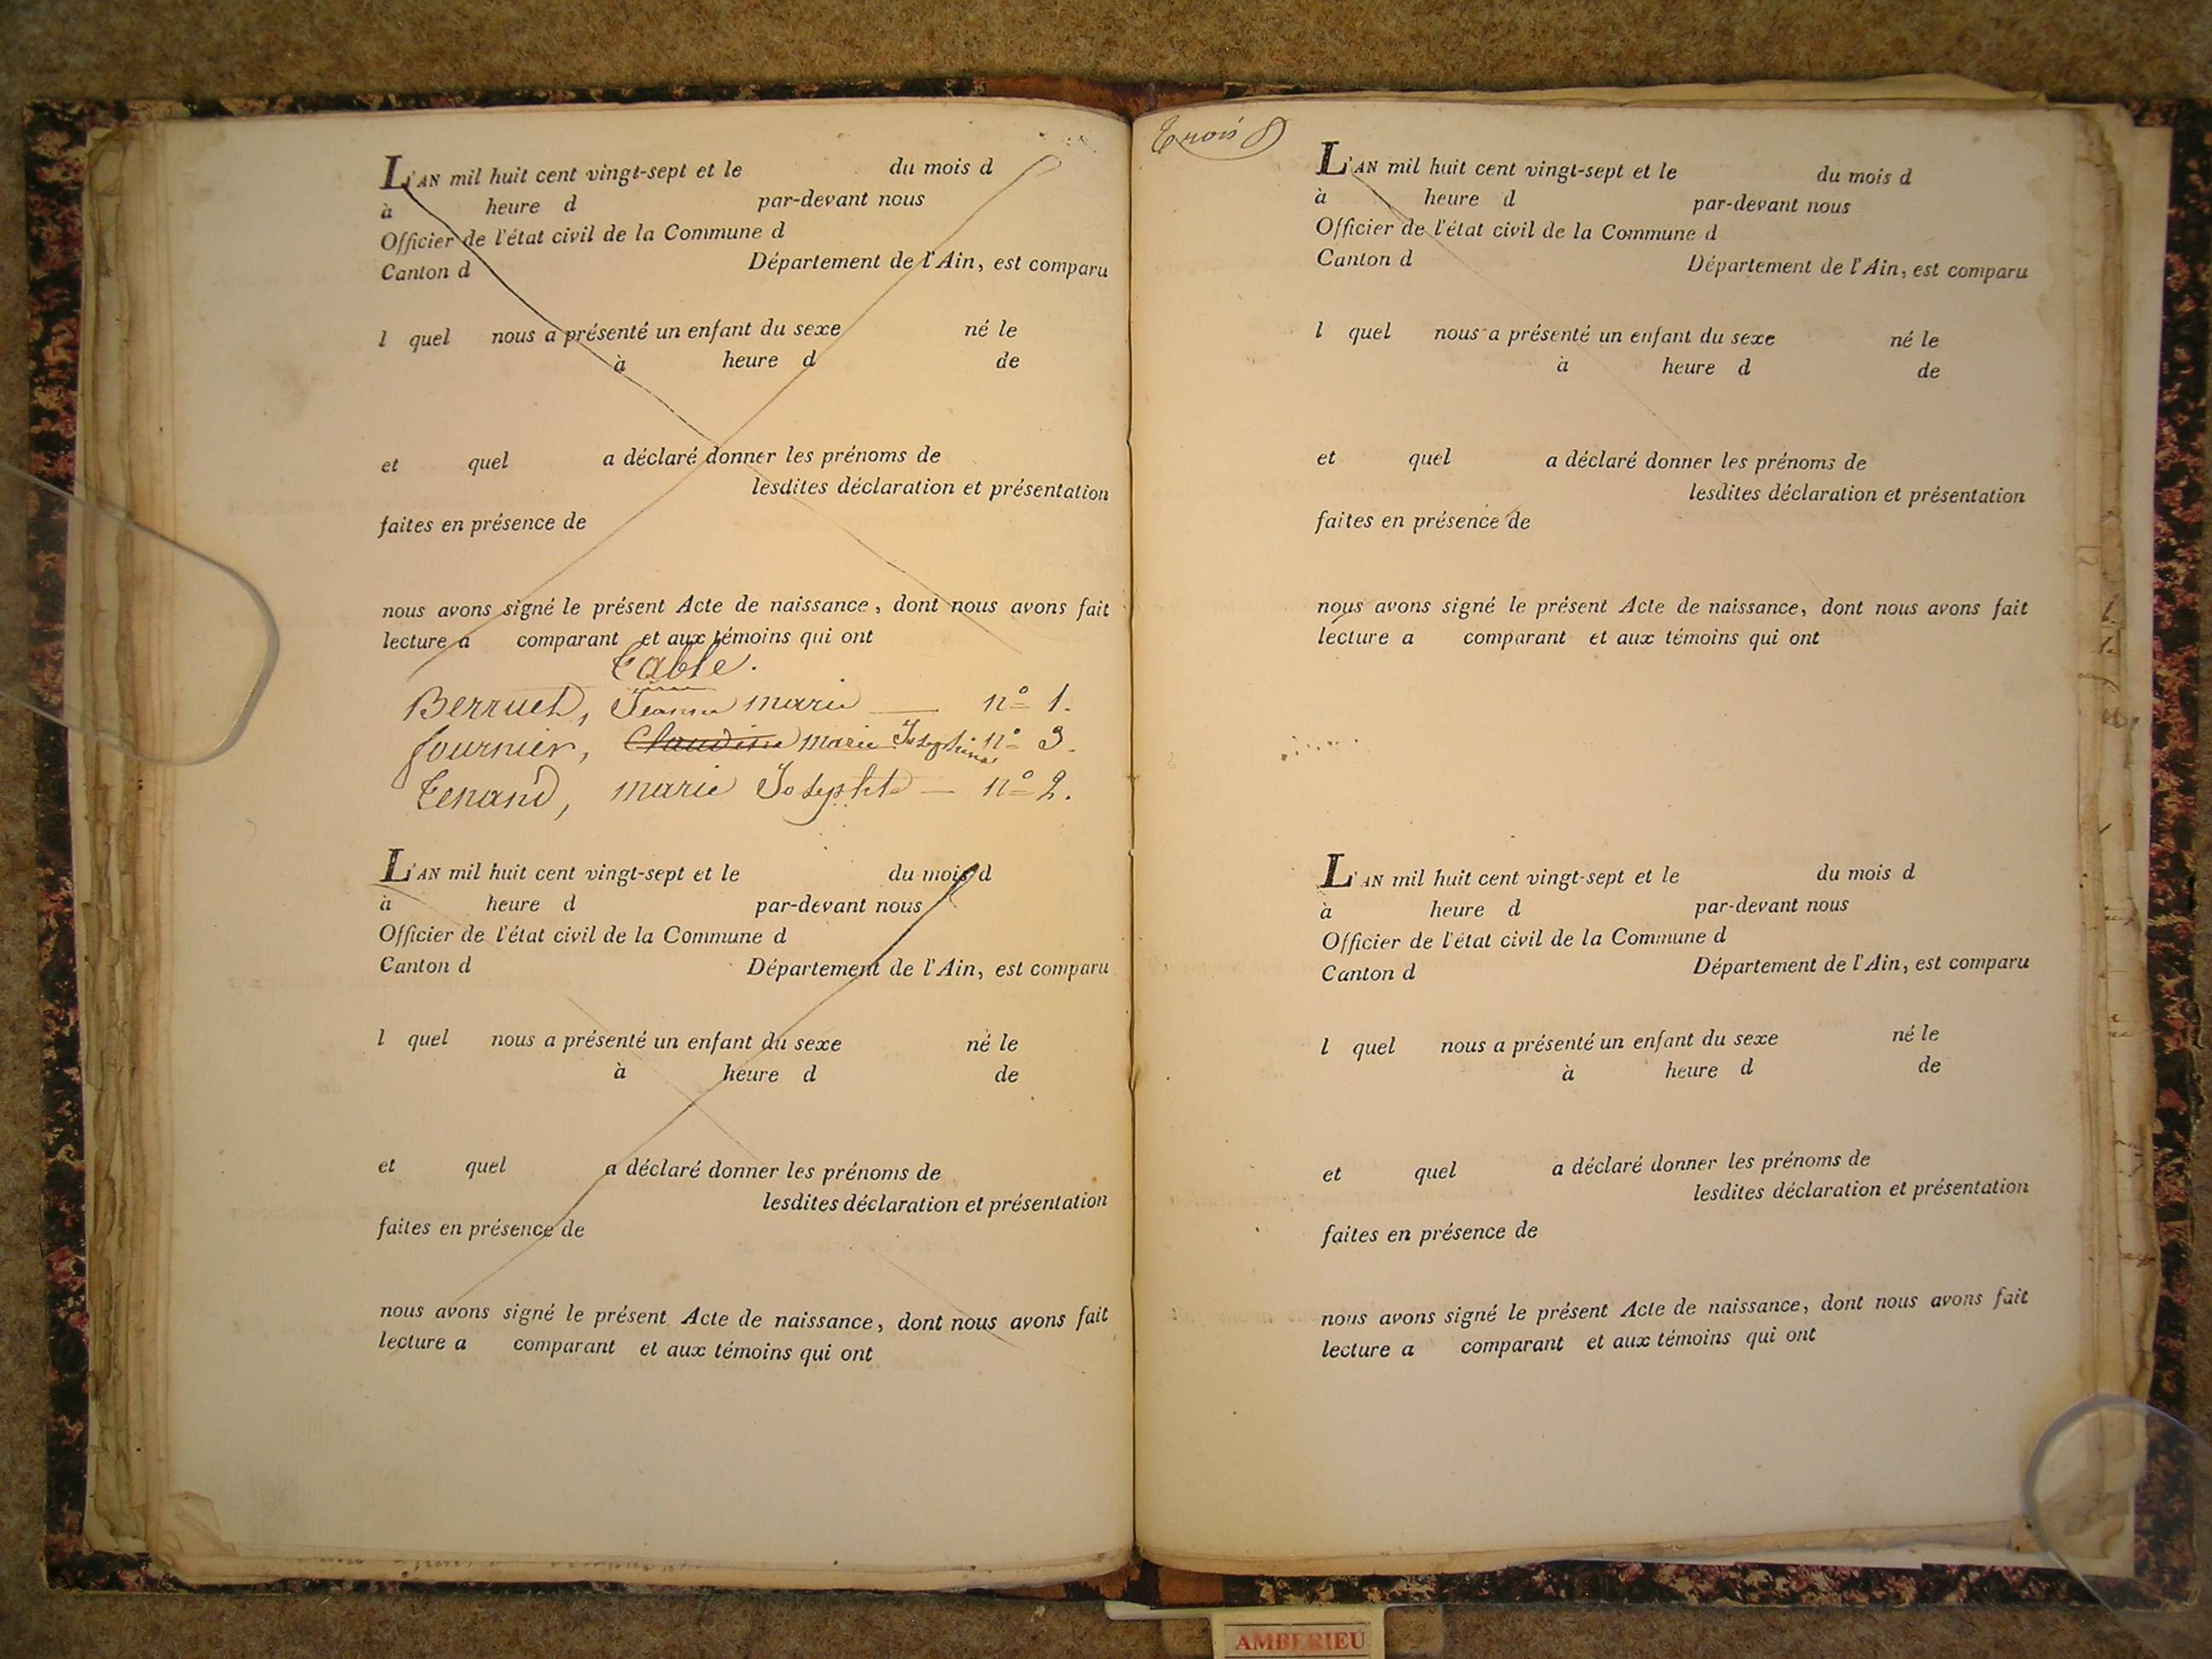 L'AN mil huit cent vingt-sept et le du mois d
à heure d par-devant nous
Officier de l'état civil de la Commune d
Canton d Département de l'Ain, est comparu
l quel nous a présenté un enfant du sexe né le
à heure d de
et quel a déclaré donner les prénoms de
lesdites déclaration et présentation
faites en présence de
nous avons signé le présent Acte de naissance, dont nous avons fait
lecture a comparant et aux témoins qui ont
Table.
Berruet, Jeanne marie n° 1.
fournier, Claudine marie Josephine n° 3.
Tenand, marie Josephte n° 2.
L'AN mil huit cent vingt-sept et le du mois d
à heure d par-devant nous
Officier de l'état civil de la Commune d
Canton d Département de l'Ain, est comparu
l quel nous a présenté un enfant du sexe né le
à heure d de
et quel a déclaré donner les prénoms de
lesdites déclaration et présentation
faites en présence de
nous avons signé le présent Acte de naissance, dont nous avons fait
lecture a comparant et aux témoins qui ont
trois
L'AN mil huit cent vingt-sept et le du mois d
à heure d par-devant nous
Officier de l'état civil de la Commune d
Canton d Département de l'Ain, est comparu
l quel nous a présenté un enfant du sexe né le
à heure d de
et quel a déclaré donner les prénoms de
lesdites déclaration et présentation
faites en présence de
nous avons signé le présent Acte de naissance, dont nous avons fait
lecture a comparant et aux témoins qui ont
L'AN mil huit cent vingt-sept et le du mois d
à heure d par-devant nous
Officier de l'état civil de la Commune d
Canton d Département de l'Ain, est comparu
l quel nous a présenté un enfant du sexe né le
à heure d de
et quel a déclaré donner les prénoms de
lesdites déclaration et présentation
faites en présence de
nous avons signé le présent Acte de naissance, dont nous avons fait
lecture a comparant et aux témoins qui ont
AMBERIEU